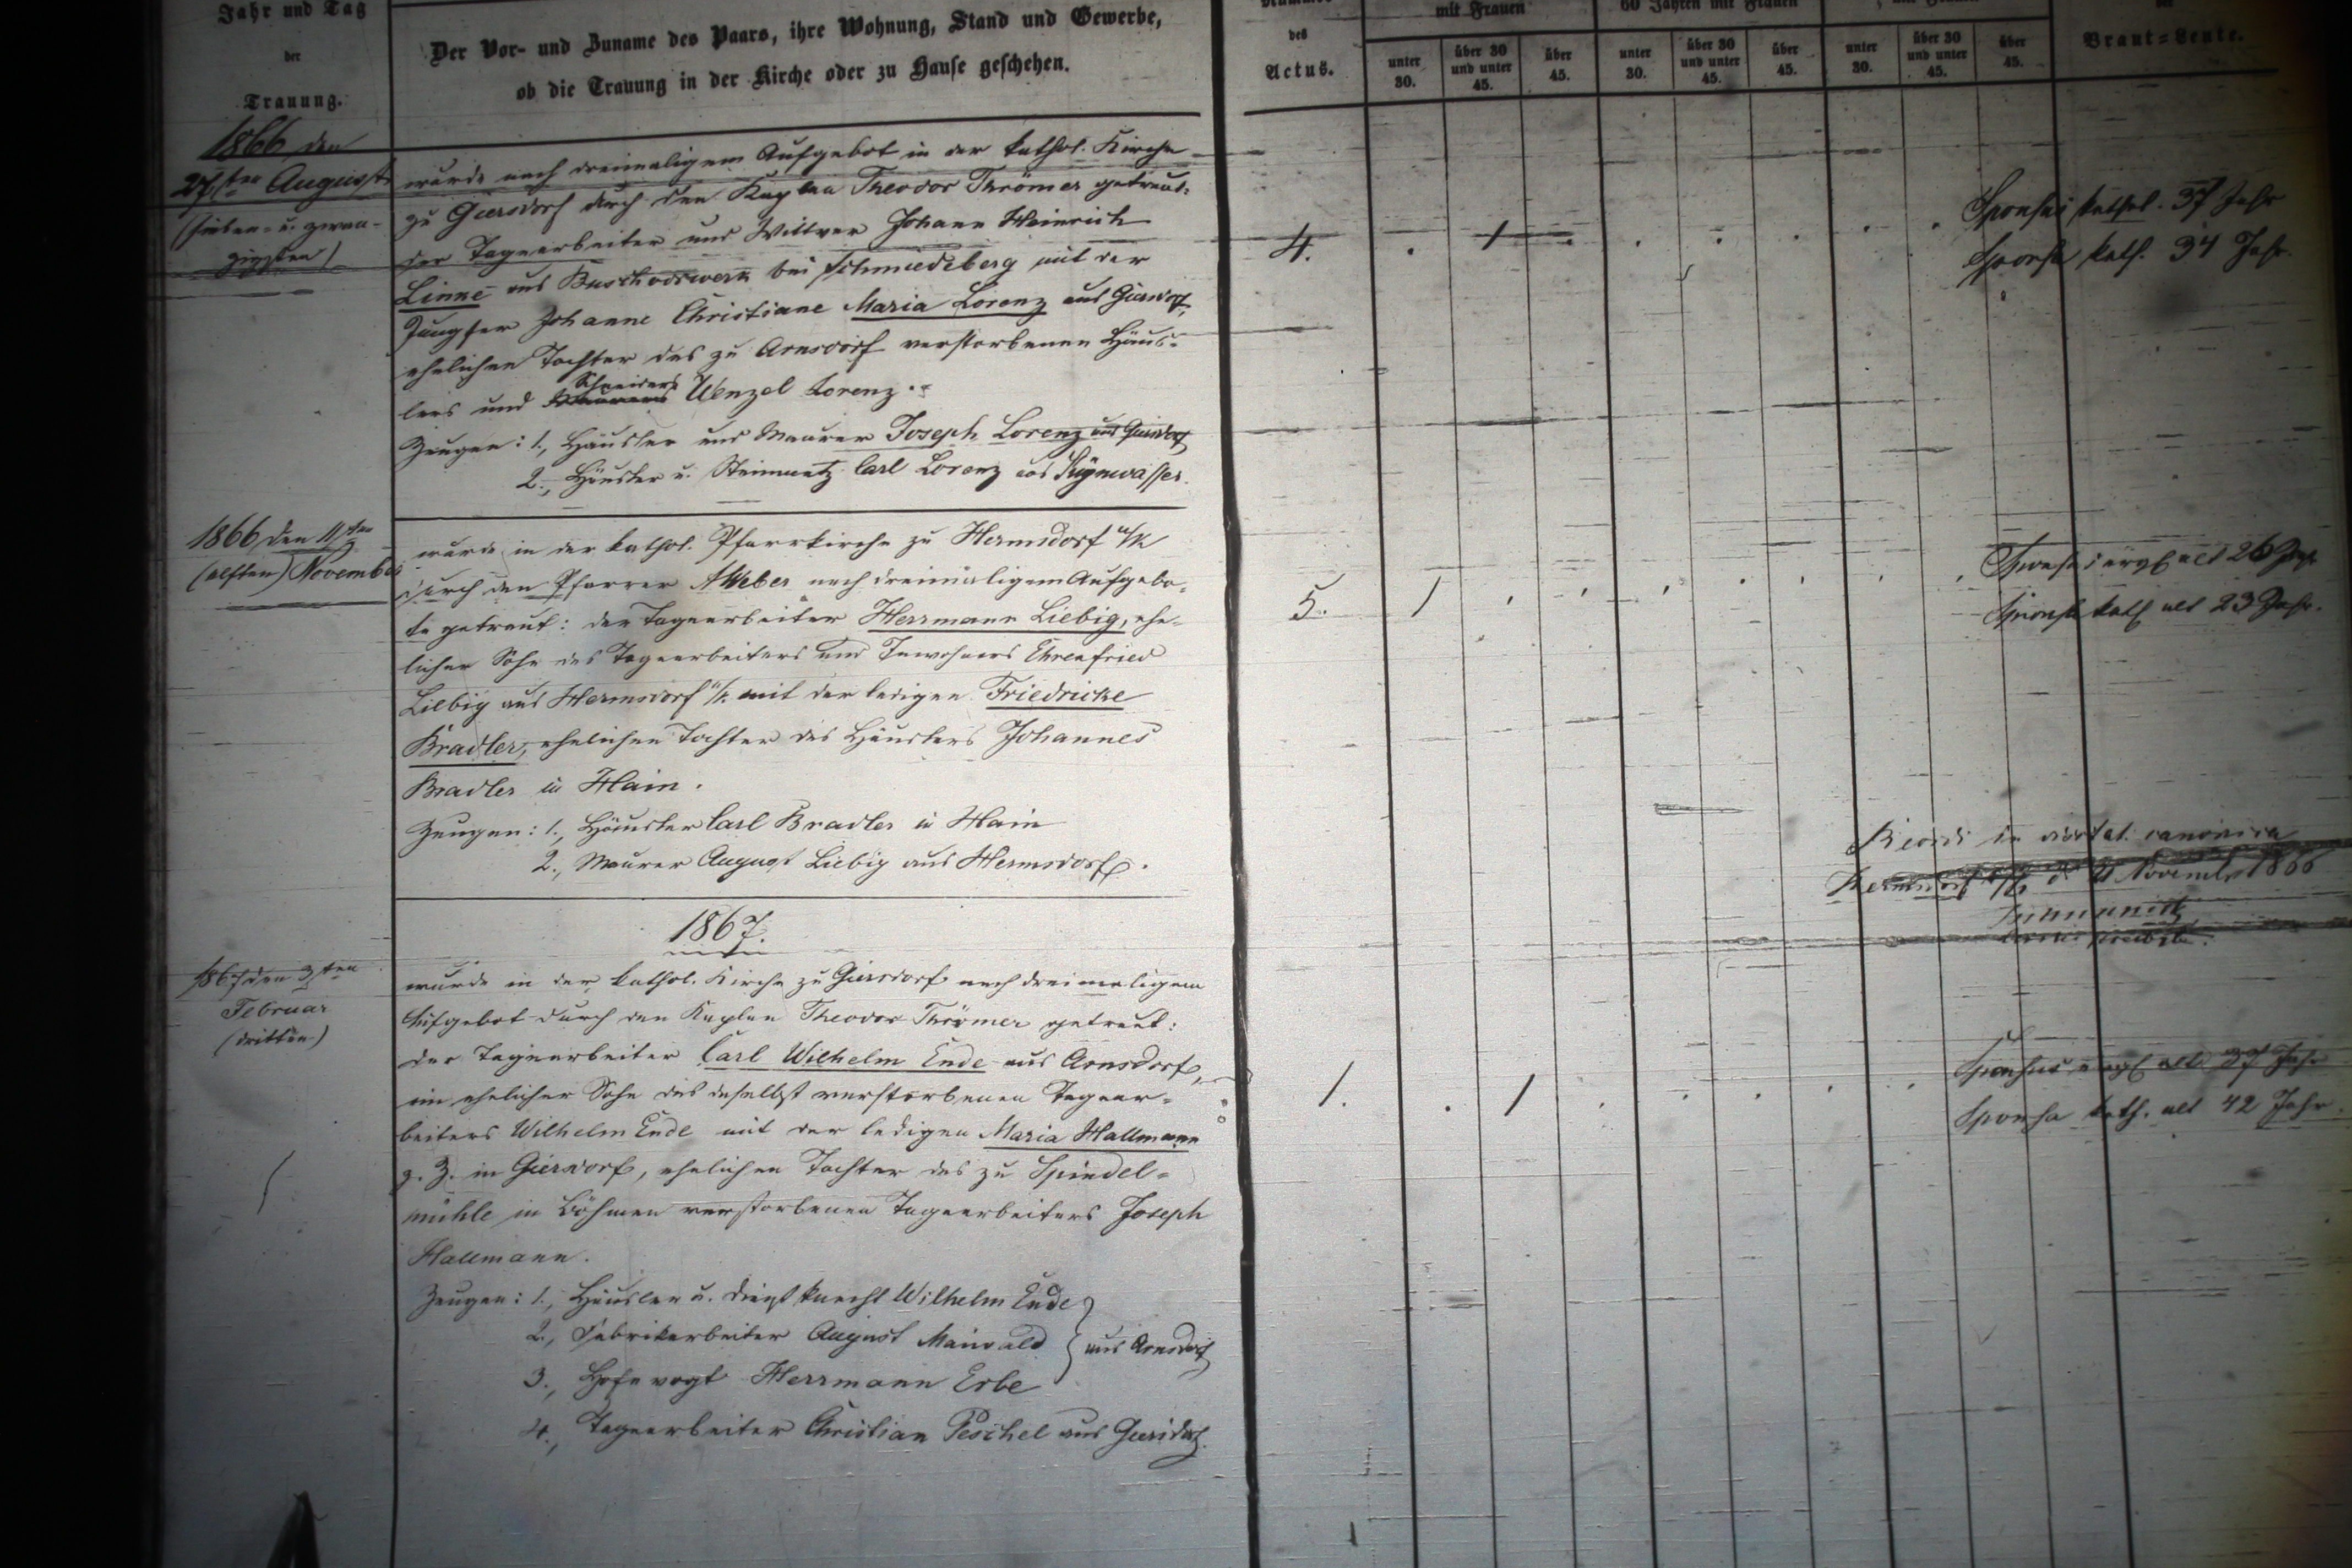 Jahr und Tag
der
Trauung.
Der Vor- und Zuname des Paars, ihre Wohnung, Stand und Gewerbe,
ob die Trauung in der Kirche oder zu Hause geschehen.
des
Actus.
mit Frauen
60 Jahren mit Frauen
unter 30.
über 30 und unter 45.
über 45.
unter 30.
über 30 und unter 45.
über 45.
unter 30.
über 30 und unter 45.
über 45.
der
Braut=Leute.
1866 den
27sten August
(sieben- u. zwan-
zigsten)
wurde nach dreimaligem Aufgebot in der kathol. Kirche
zu Giersdorf durch den Kaplan Theodor Thrömer getraut:
der Tagearbeiter und Wittwer Johann Heinrich
Linne aus Buschvorwerk bei Schmiedeberg mit der
Jungfer Johanne Christiane Maria Lorenz aus Giersdorf,
ehelichen Tochter des zu Arnsdorf verstorbenen Häus-
lers und Schneiders Wenzel Lorenz.
Zeugen: 1., Häusler und Maurer Joseph Lorenz aus Giersdorf
2., Häusler u. Steinmetz Carl Lorenz aus
4.
Sponsus kathol. 37 Jahr
Sponsa kath. 34 Jahr.
1866 den 11ten
(elften) November
wurde in der kathol. Pfarrkirche zu Hermsdorf u/K
durch den Pfarrer Weber nach dreimaligem Aufgebo-
te getraut: der Tagearbeiter Herrmann Liebig, ehe-
licher Sohn des Tagearbeiters und Inwohners Ehrenfried
Liebig aus Hermsdorf u/K. mit der ledigen Friedricke
Bradler, ehelichen Tochter des Häuslers Johannes
Bradler in Hain.
Zeugen: 1., Häusler Carl Bradler in Hain
2., Maurer August Liebig aus Hermsdorf.
5.
Sponsus evgl alt 26 Jahr
Sponsa kath alt 23 Jahr.
in visitat. canonica
Hermsdorf u/K d. Novembr 1866
1867.
1867 den 3ten
Februar
(dritten)
wurde in der kathol. Kirche zu Giersdorf nach dreimaligem
Aufgebot durch den Kaplan Theodor Thrömer getraut:
der Tagearbeiter Carl Wilhelm Ende aus Arnsdorf,
ein ehelicher Sohn des daselbst verstorbenen Tagear-
beiters Wilhelm Ende mit der ledigen Maria Hallmann
z. Z. in Giersdorf, ehelichen Tochter des zu Spindel-
mühle in Böhmen verstorbenen Tagearbeiters Joseph
Hallmann.
Zeugen: 1., Häusler u. Dienstknecht Wilhelm Ende
2., Fabrikarbeiter August Maiwald
aus Arnsdorf
3., Hofevogt Herrmann Erbe
4., Tagearbeiter Christian Peschel aus Giersdorf.
1.
Sponsus evgl alt Jahr
Sponsa kath. alt 42 Jahr.